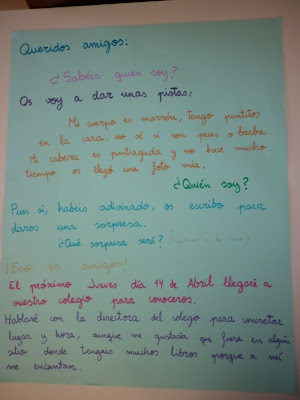 Queridos amigos:
¿Sabéis quien soy?
Os voy a dar unas pistas:
Mi cuerpo es marrón, tengo puntitos
en la cara. no sé si son pecas o barba.
Mi cabeza es puntiaguda y no hace mucho
tiempo os llegó una foto mía.
¿Quién soy?
Pues sí, habéis adivinado, os escribo para
daros una sorpresa.
¿Qué sorpresa será?
¡Eso es amigos!
El próximo Jueves día 14 de Abril llegaré a
vuestro colegio para conoceros.
Hablaré con la directora del colegio para concretar
lugar y hora, aunque me gustaría que fuera en algún
sitio donde tengais muchos libros porque a mí
me encantan.